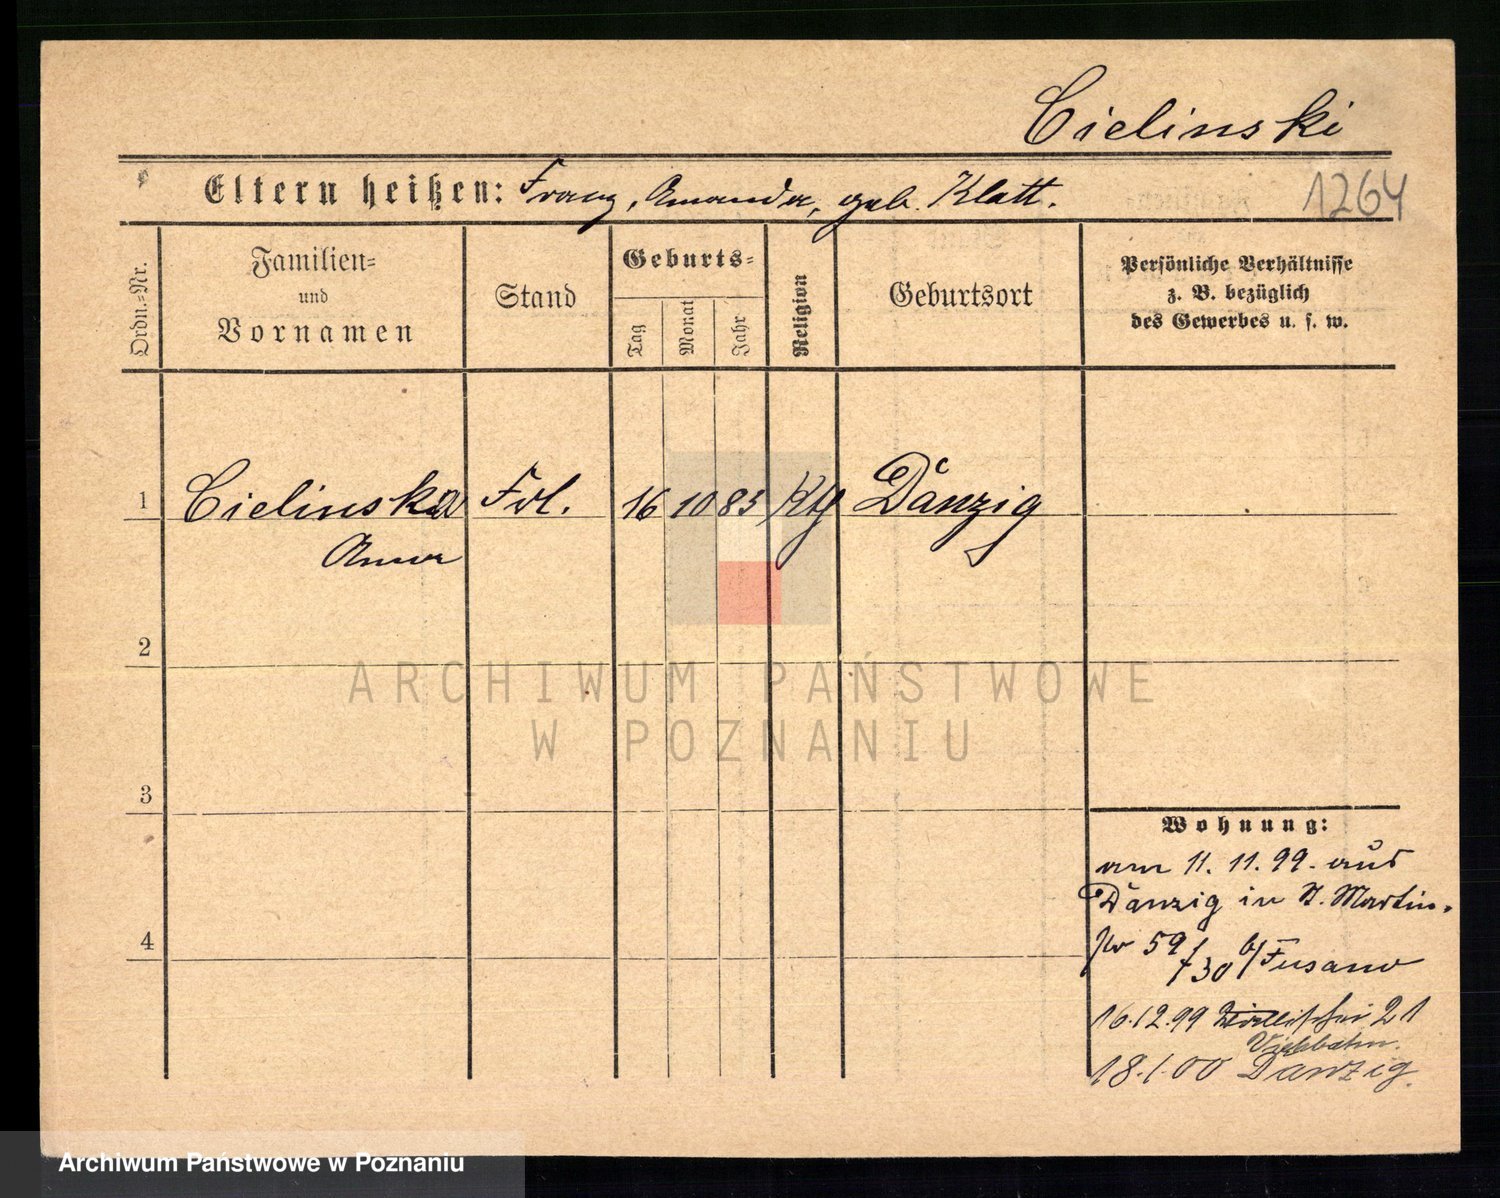 Cielinski
Eltern heißen: Franz, Amanda, geb. Klatt.
1264
Ordn.=Nr.
Familien=
und
Vornamen
Stand
Geburts=
Tag
Monat
Jahr
Religion
Geburtsort
Persönliche Verhältnisse
z. B. bezüglich
des Gewerbes u. s. w.
1 Cielinska Frl. 16 10 83 Kth Danzig
Anna
2
ARCHIWUM PAŃSTWOWE
W POZNANIU
3
Wohnung:
am 11. 11. 99. aus
Danzig in St. Martin.
No 59/
30 b/
16.12.99 21
18.1.00 Danzig.
4
Archiwum Państwowe w Poznaniu